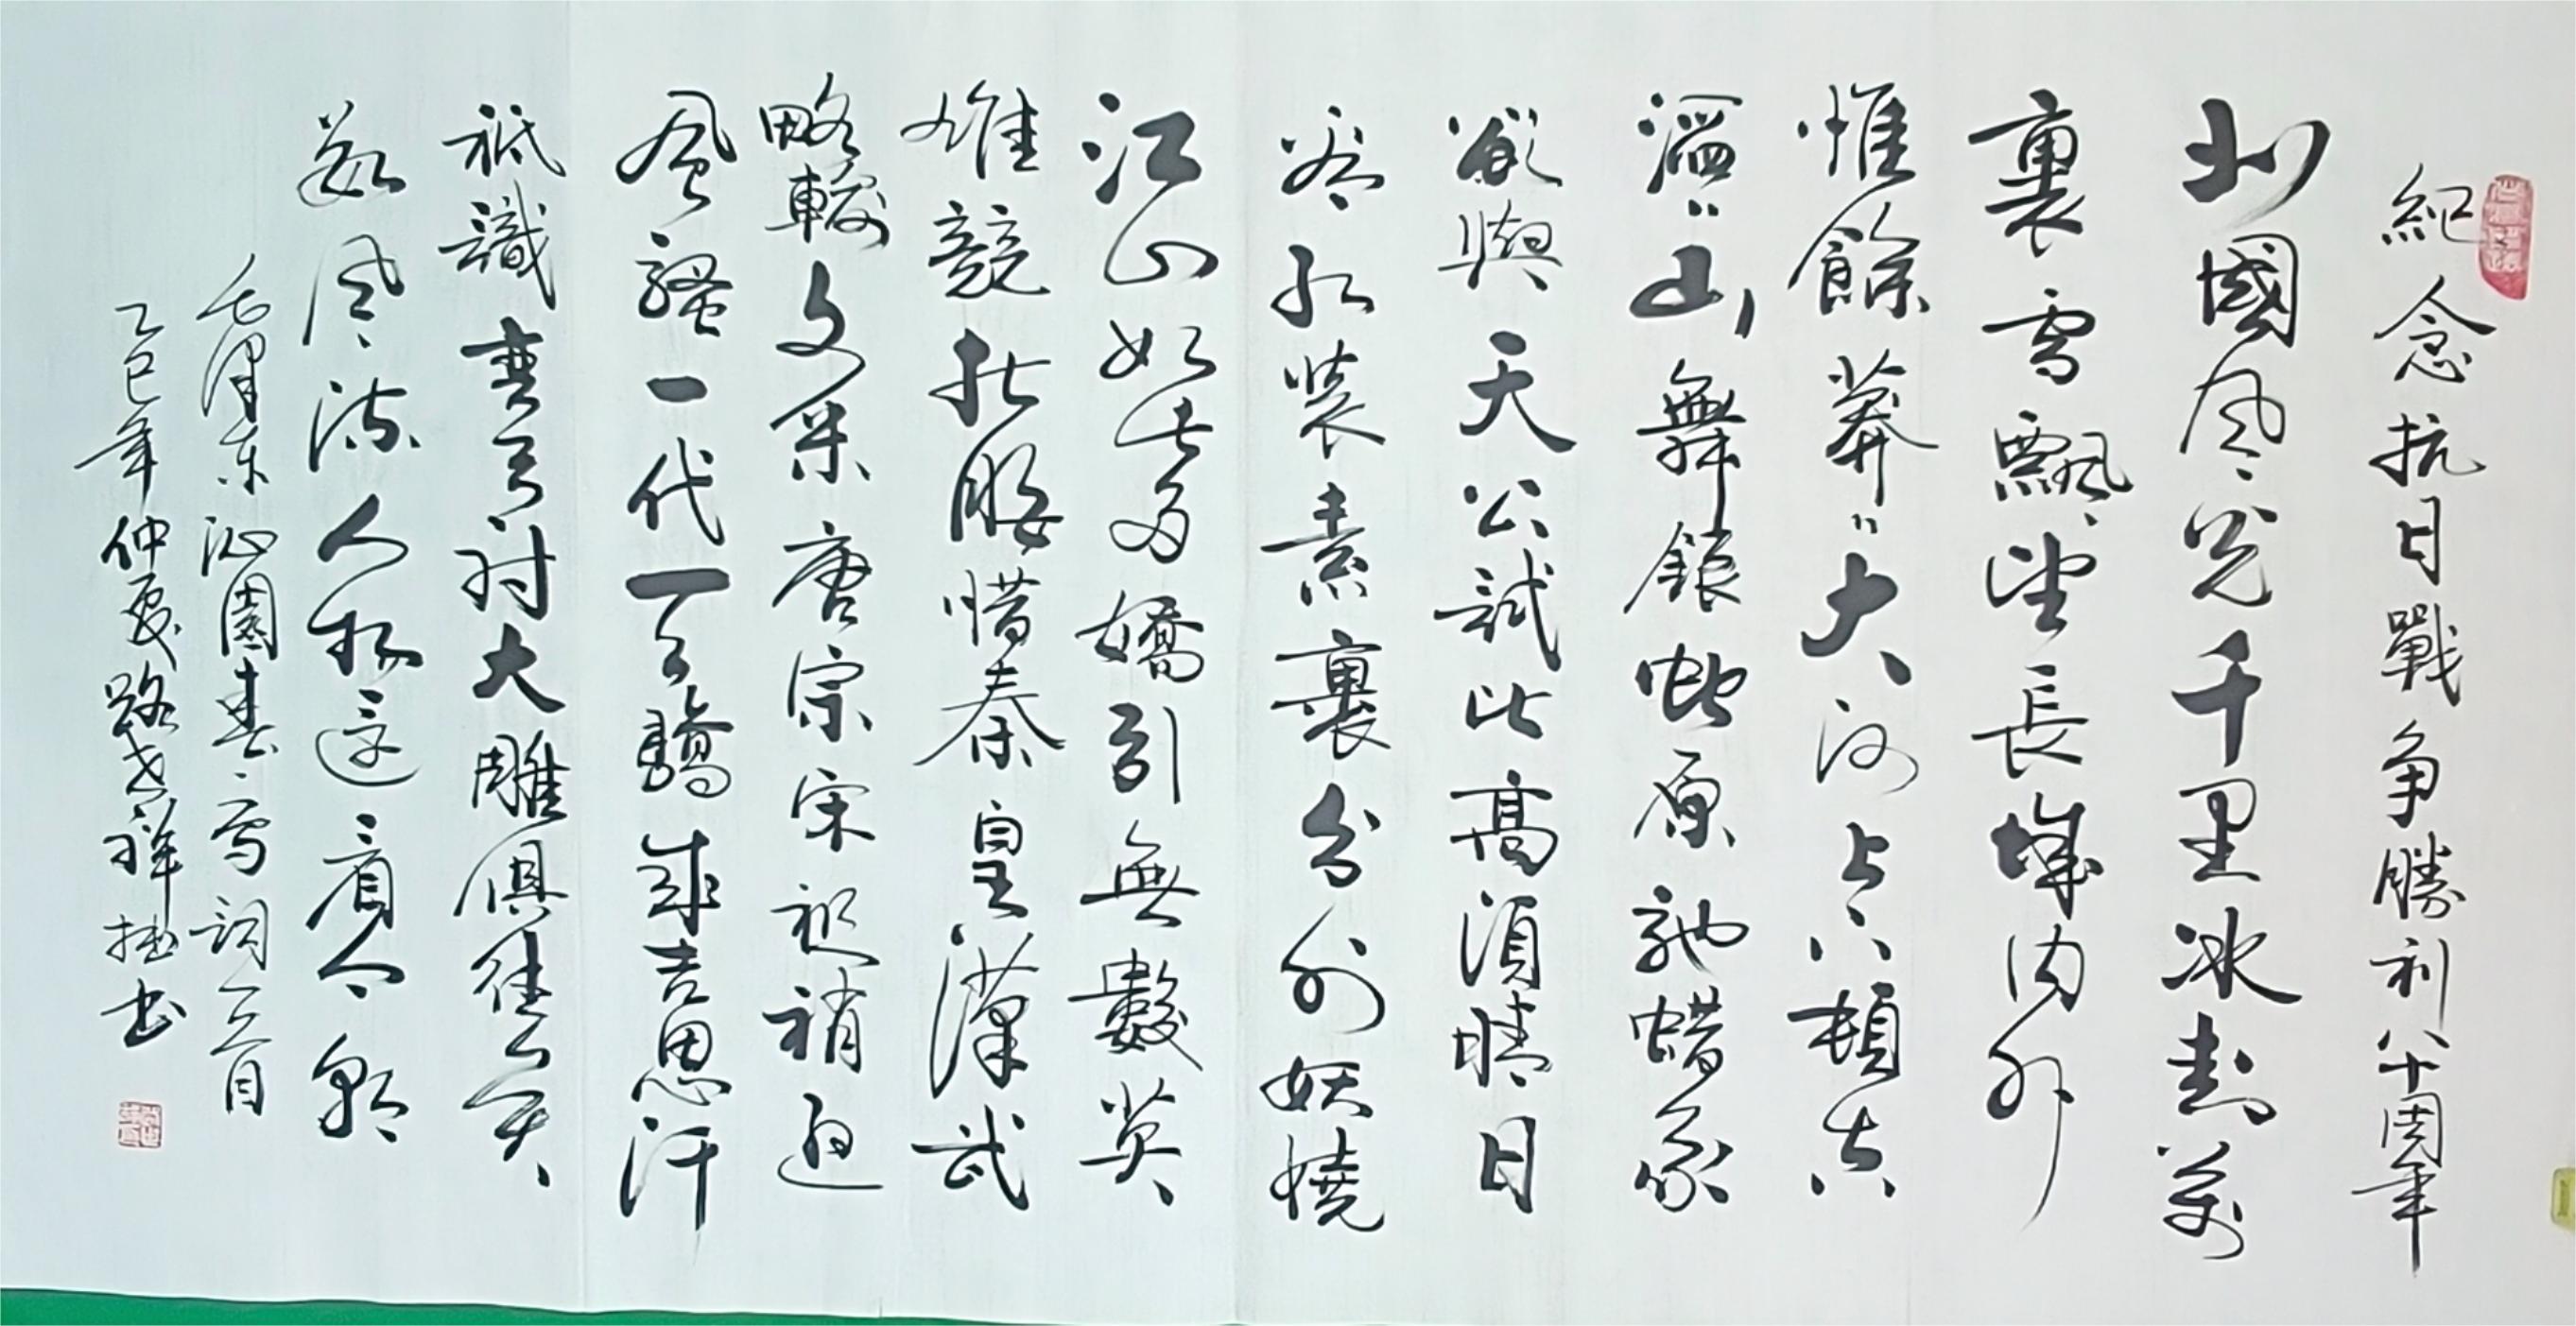 紀念抗日戰争勝利八十周年
北國风光千里冰封萬
裏雪飄望長城内外
惟餘莽〃大河上下頓失
滔〃山舞銀蛇原馳蜡象
欲與天公試比高須晴日
看红装素裹分外妖嬈
江山如此多嬌引無數英
雄競折腰惜秦皇漢武
略輸文采唐宗宋祖稍遜
風騷一代天驕成吉思汗
祗識彎弓射大雕俱往矣
數风流人物還看今朝
毛澤东沁園春雪詞一首
乙巳年仲夏路老祥拙书